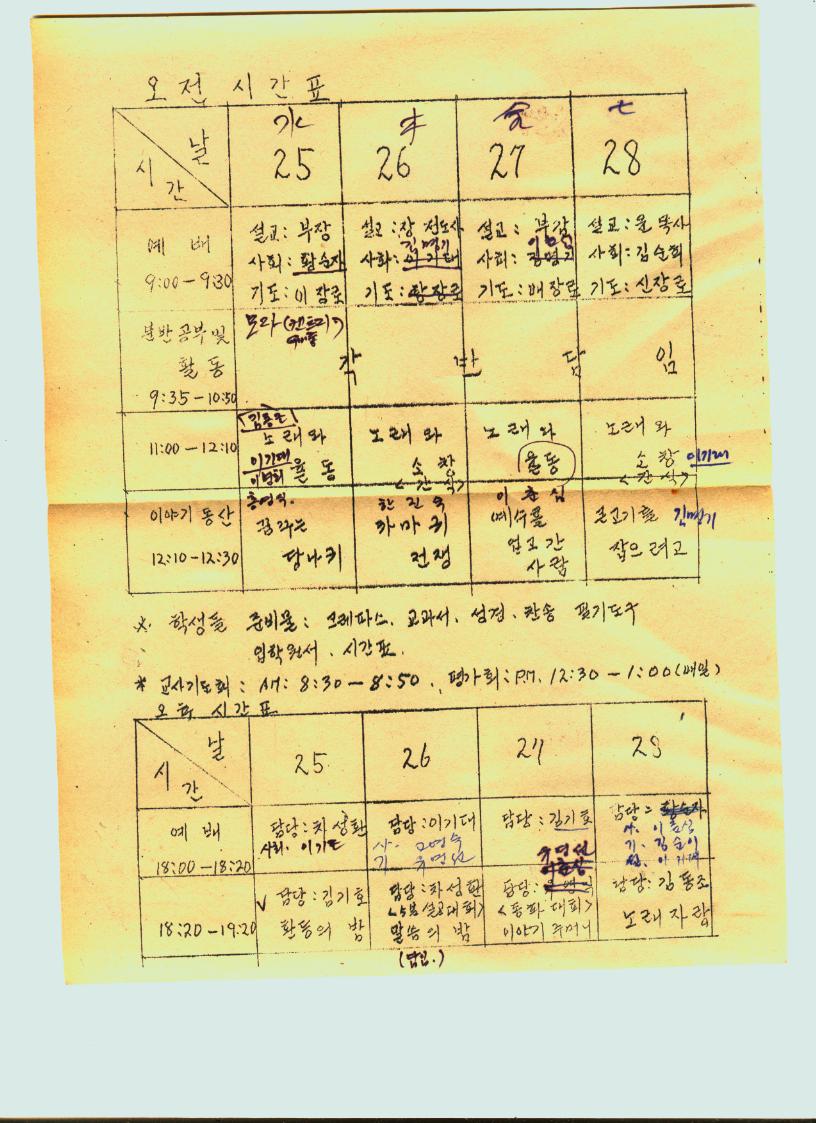 오전 시간표
날
시간
水 木 金 土
25 26 27 28
예 배
9:00-9:30
설교: 부장
사회: 황순자
기도: 이장로
설교: 장전도사
김명기
사회: 이기태
기도: 황장로
설교: 부감
사회:
기도: 배장로
설교: 윤목사
사회: 김순희
기도: 신장로
분반공부및
활동
9:35-10:50
각 반 담 임
11:00-12:10
노래와
이기태
율동
노래와
소창
<간식>
노래와
율동
노래와
소창 이기태
<간식>
이야기 동산
12:10-12:30
홍영식.
당나귀
한진욱
까마귀
전쟁
이춘심
예수를
업고간
사람
큰고기를 김명기
잡으려고
※ 학생들 준비물: 크레파스. 교과서. 성경. 찬송 필기도구
입학원서. 시간표.
* 교사기도회: AM: 8:30-8:50. 평가회: P.M. 12:30-1:00(매일)
오후 시간표
날
시간
25 26 27 28
예 배
18:00-18:20
담당: 차성환
사회. 이기태
담당: 이기태
사.
기 유명선
담당: 김기호
담당: 황순자
사. 이춘심
기. 김순이
18:20-19:20
√ 담당: 김기호
환등의 밤
담당: 차성환
<5분설교대회>
말씀의 밤
(담임.)
유명선
담당:
<동화대회>
이야기 주머니
담당: 김동조
노래자랑